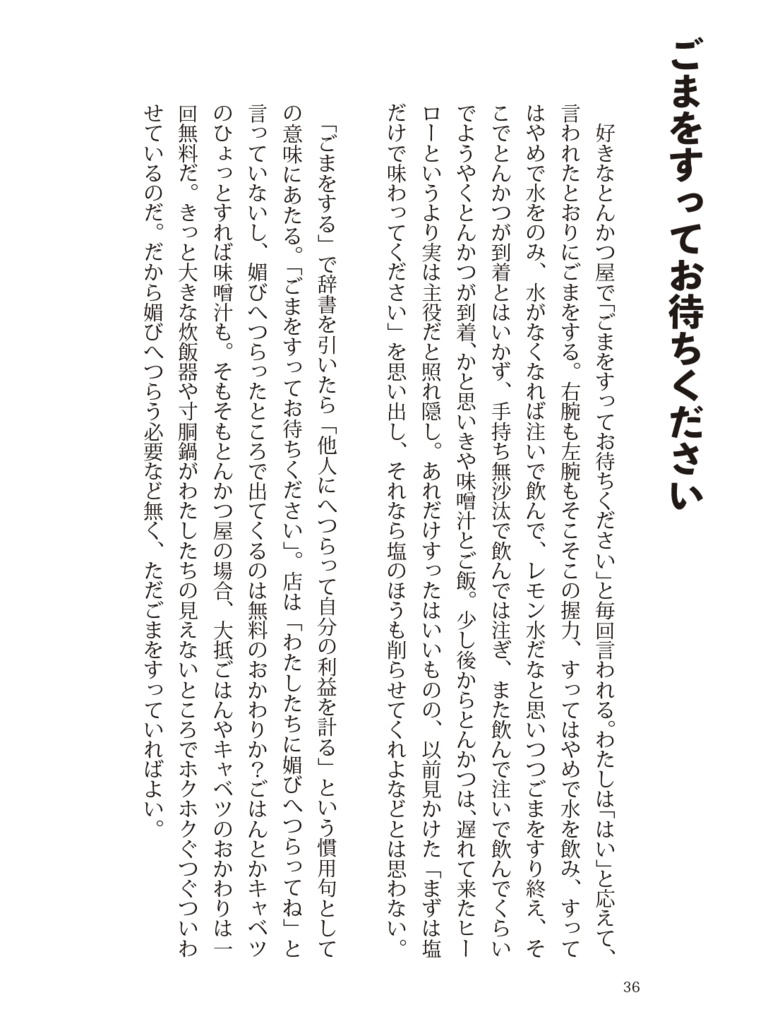 ごまをすってお待ちください
好きなとんかつ屋で「ごまをすってお待ちください」と毎回言われる。わたしは「はい」と応えて、
言われたとおりにごまをする。右腕も左腕もそこそこの握力、すってはやめで水を飲み、すって
はやめで水をのみ、水がなくなれば注いで飲んで、レモン水だなと思いつつごまをすり終え、そ
こでとんかつが到着とはいかず、手持ち無沙汰で飲んでは注ぎ、また飲んで注いで飲んでくらい
でようやくとんかつが到着、かと思いきや味噌汁とご飯。少し後からとんかつは、遅れて来たヒー
ローというより実は主役だと照れ隠し。あれだけすったはいいものの、以前見かけた「まずは塩
だけで味わってください」を思い出し、それなら塩のほうも削らせてくれよなどとは思わない。
「ごまをする」で辞書を引いたら「他人にへつらって自分の利益を計る」という慣用句として
の意味にあたる。「ごまをすってお待ちください」。店は「わたしたちに媚びへつらってね」と
言っていないし、媚びへつらったところで出てくるのは無料のおかわりか？ごはんとかキャベツ
のひょっとすれば味噌汁も。そもそもとんかつ屋の場合、大抵ごはんやキャベツのおかわりは一
回無料だ。きっと大きな炊飯器や寸胴鍋がわたしたちの見えないところでホクホクぐつぐついわ
せているのだ。だから媚びへつらう必要など無く、ただごまをすっていればよい。
36